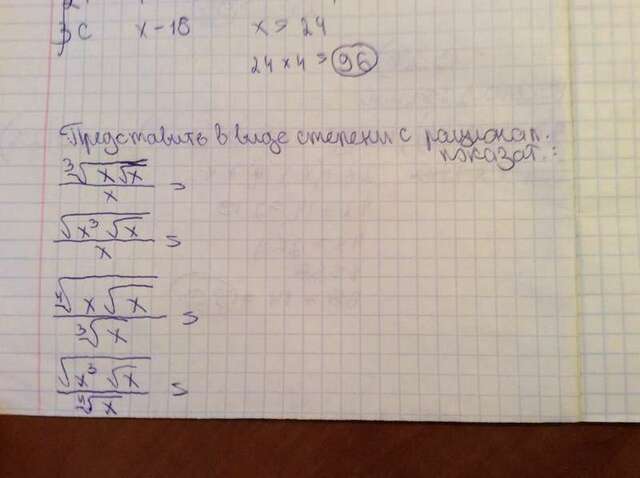 3 С x - 18 x = 24
24 × 4 = 96
Представить в виде степени с рационал.
показат.:
∛(x√x) / x =
√(x³√x) / x =
∜(x√x) / ∛x =
√(x³√x) / ⁵√x =